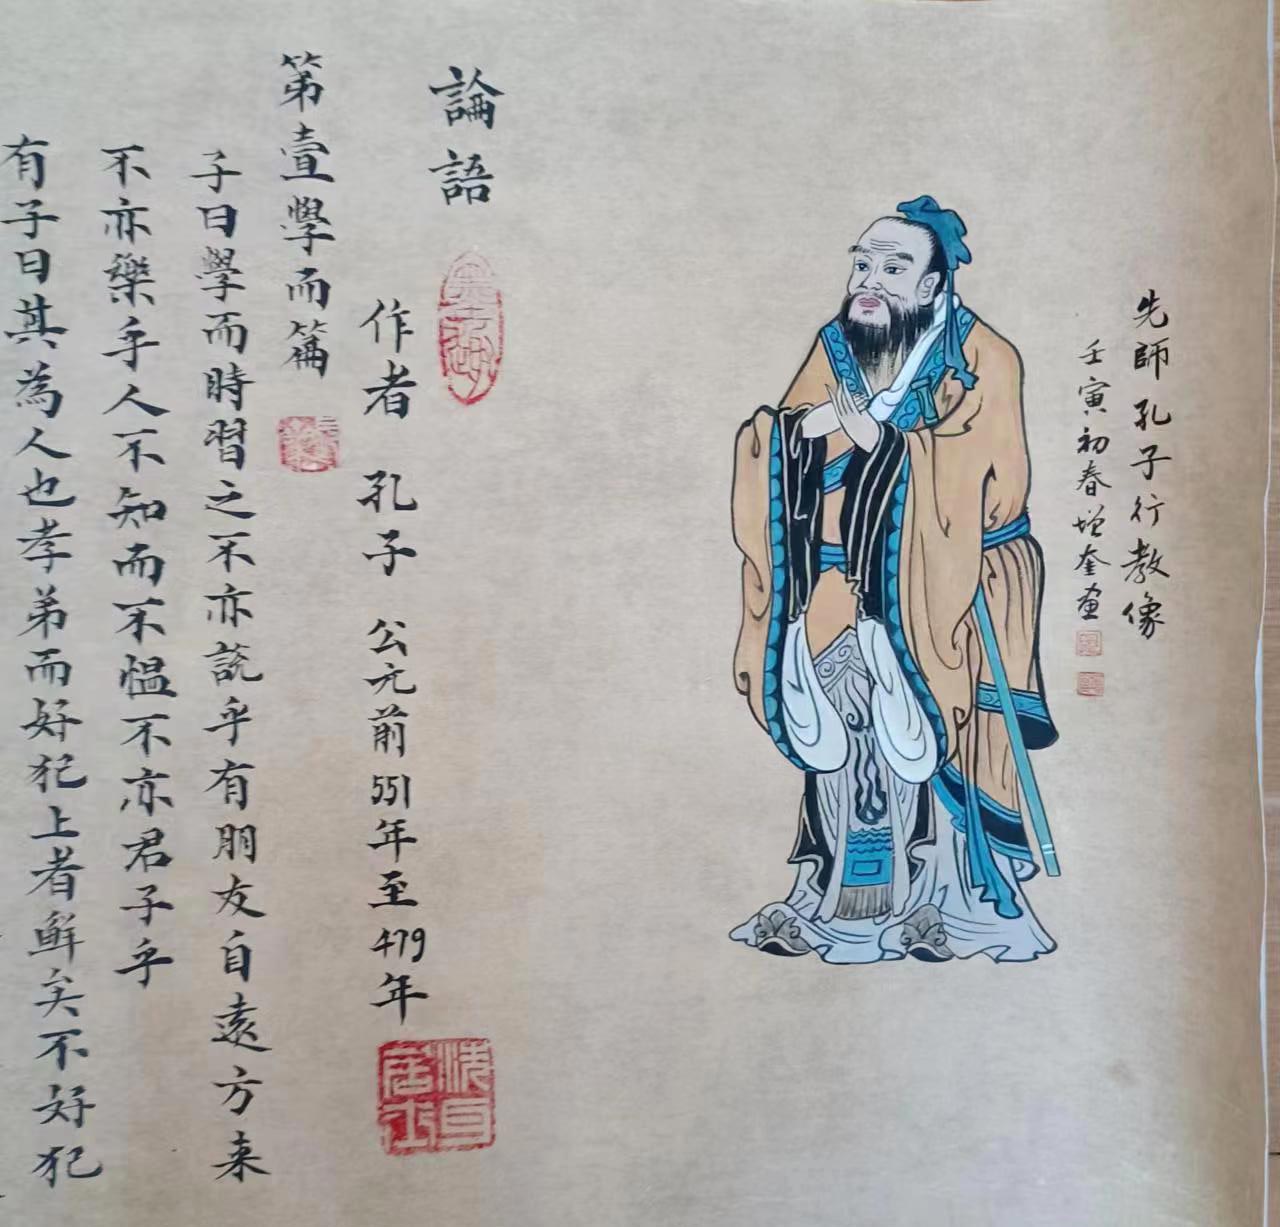 先師孔子行教像
壬寅初春增奎画
論語
作者 孔子 公元前551年至479年
第壹學而篇
子曰學而時習之不亦説乎有朋友自遠方来
不亦樂乎人不知而不愠不亦君子乎
有子曰其為人也孝弟而好犯上者鲜矣不好犯